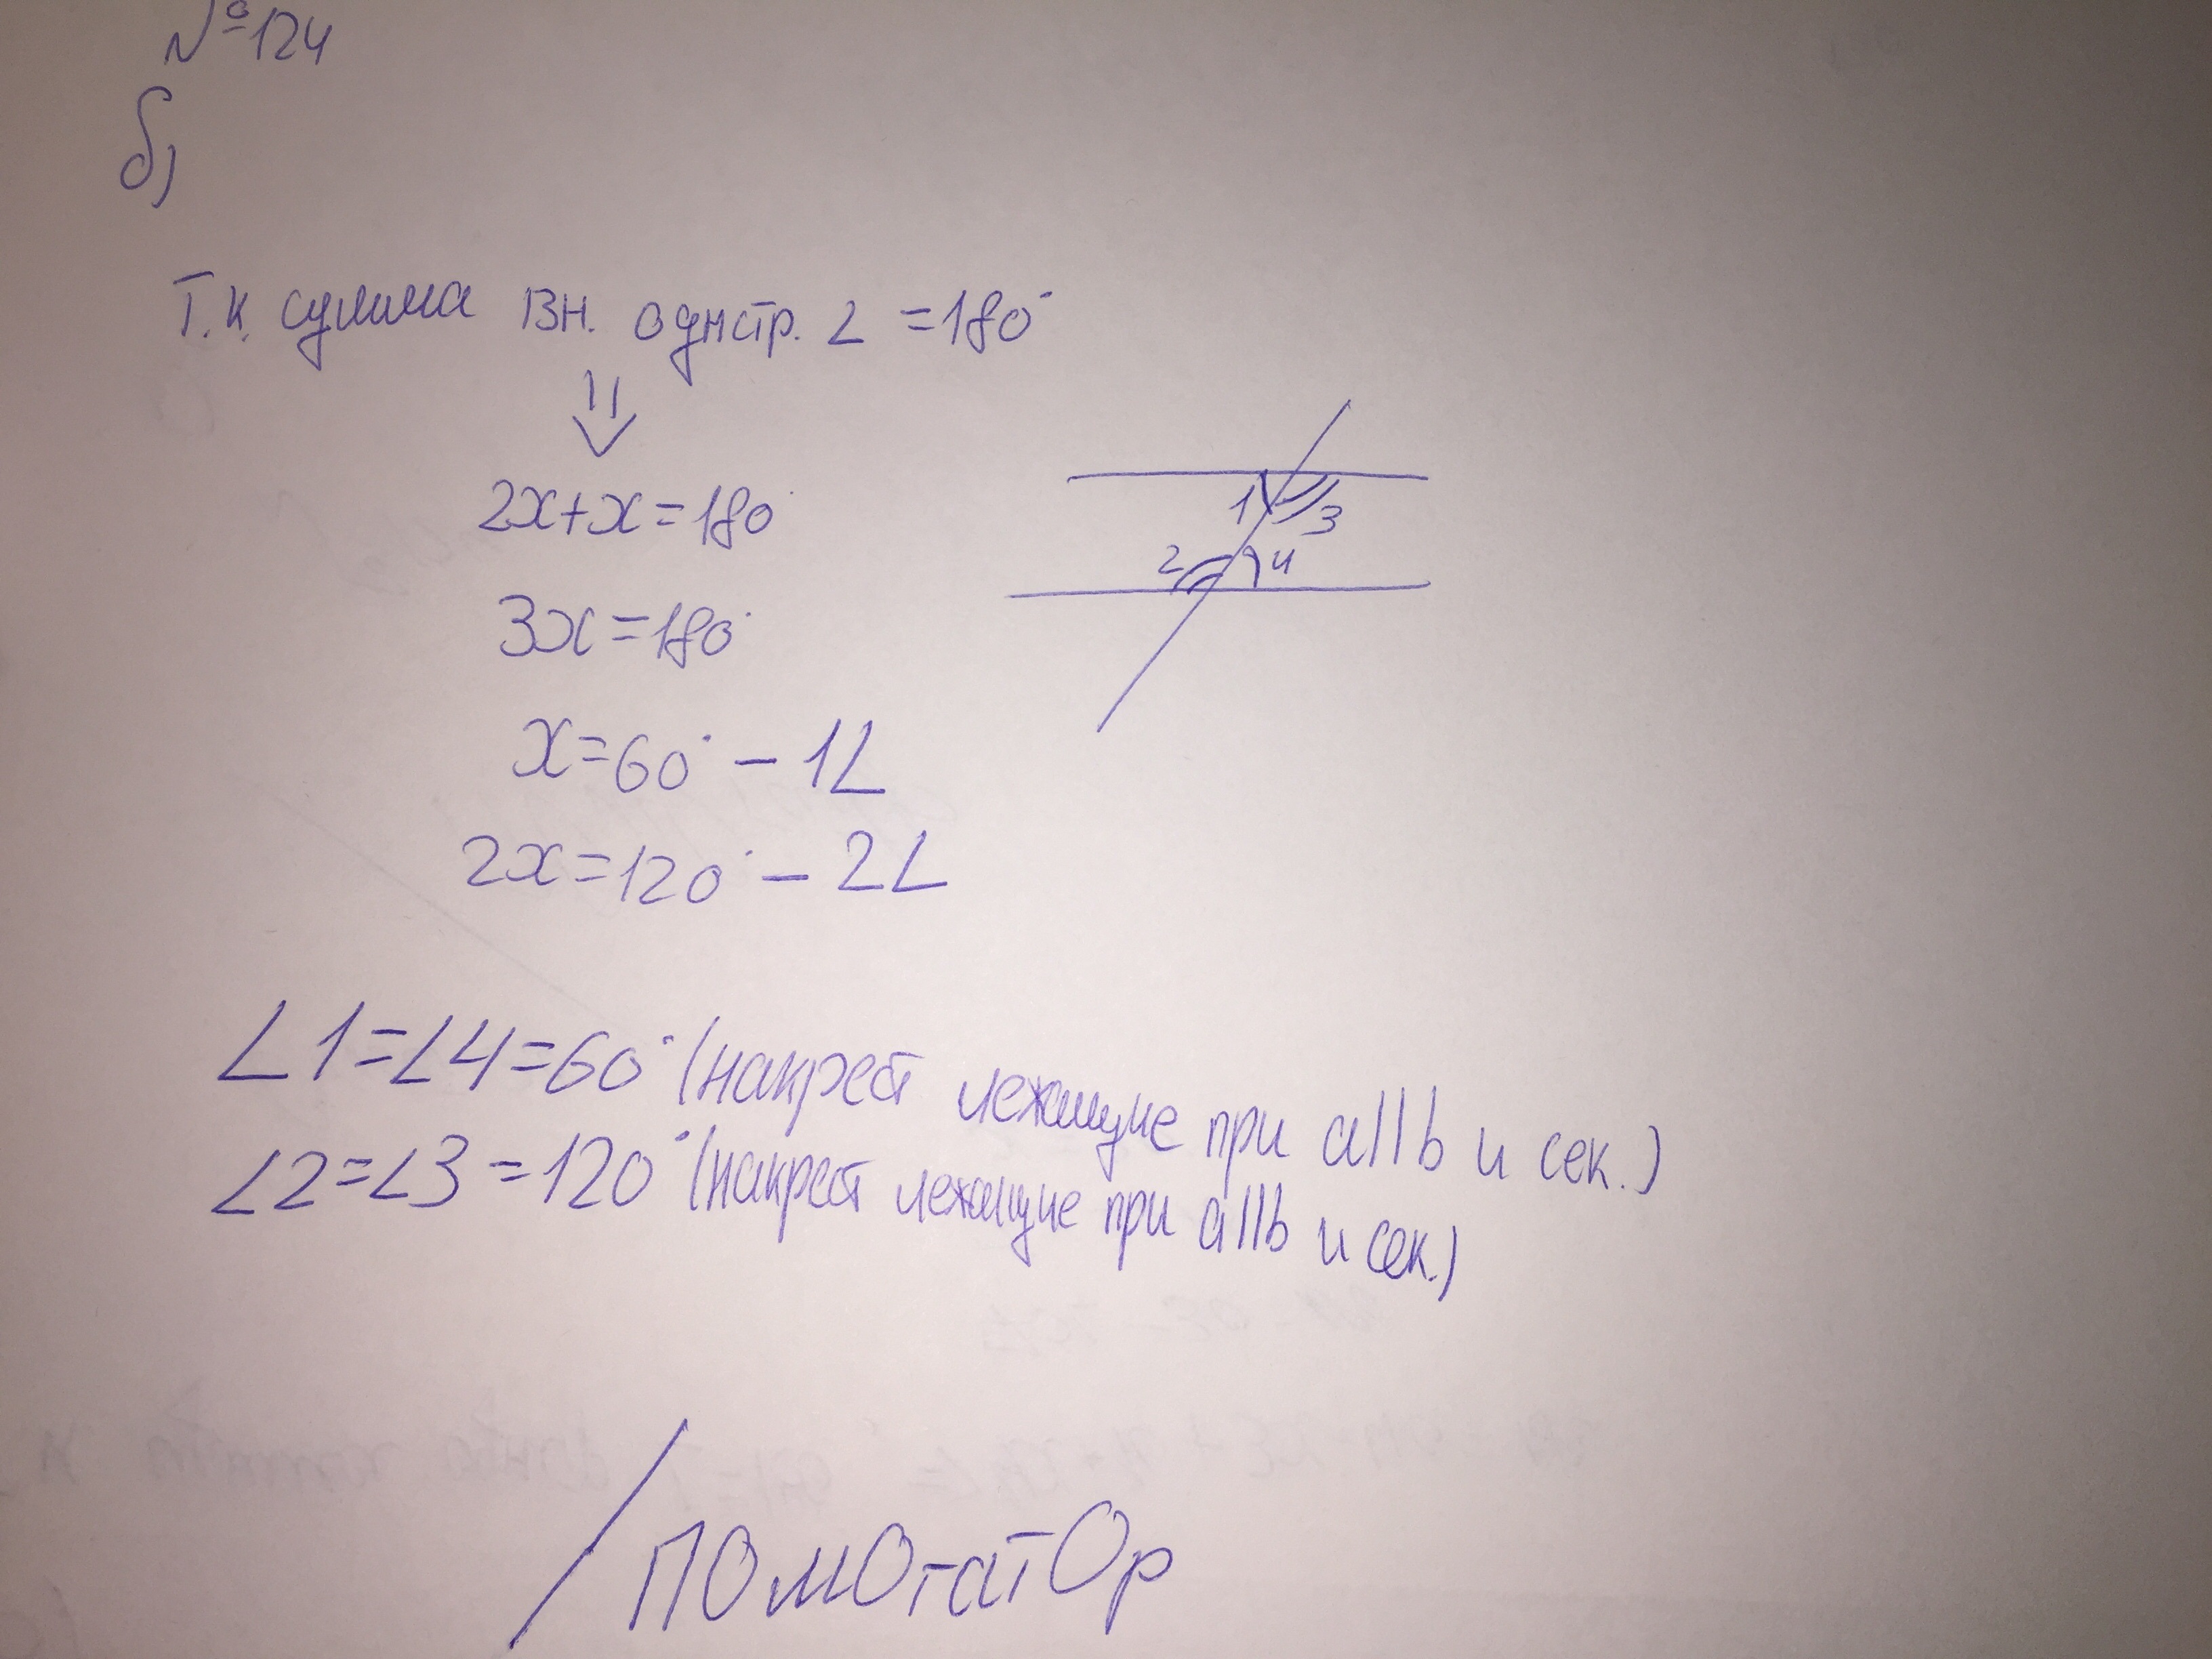 №124
б)
Т.к. сумма вн. однстр. ∠ =180°
2x+x=180°
1 3
2 4
3x=180°
x=60° – 1∠
2x=120° – 2∠
∠1=∠4=60° (накрест лежащие при a||b и сек.)
∠2=∠3=120° (накрест лежащие при a||b и сек.)
/ПОмОгатОр